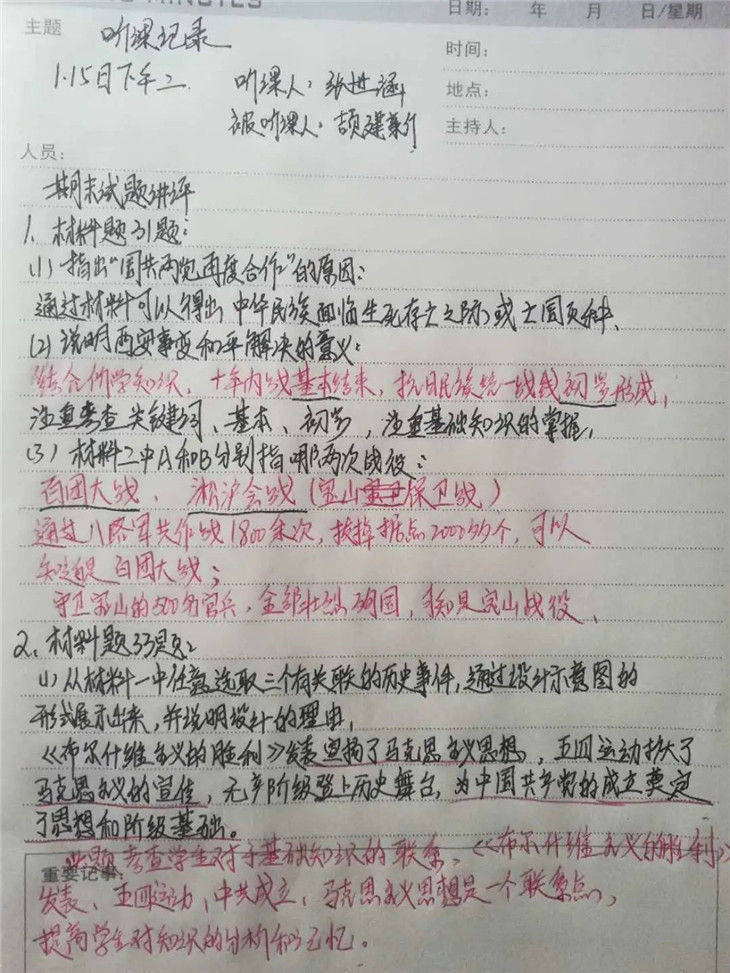 MINUTES
日期: 年 月 日/星期
主题 听课记录
时间:
1.15日下午二 听课人:张世涵
地点:
被听课人:颉建新
主持人:
人员:
期末试题讲评
1、材料题31题:
(1)指出“国共两党再度合作”的原因:
通过材料可以得出,中华民族面临生死存亡之际,或亡国灭种、
(2)说明西安事变和平解决的意义:
结合所学知识,十年内战基本结束,抗日民族统一战线初步形成,
注重考查关键词、基本、初步,注重基础知识的掌握,
(3)材料二中A和B分别指哪两次战役:
百团大战、淞沪会战(宝山保卫战)
通过八路军共作战1800余次,拔掉据点2000多个,可以
知道是百团大战;
守卫宝山的500名官兵,全部壮烈殉国,可知是宝山战役、
2、材料题33题:
(1)从材料一中任意选取三个有关联的历史事件,通过设计示意图的
形式展示出来,并说明设计的理由,
《布尔什维主义的胜利》发表宣扬了马克思主义思想,五四运动扩大了
马克思主义的宣传,无产阶级登上历史舞台,为中国共产党的成立奠定
了思想和阶级基础。
此题考查学生对于基础知识的联系、《布尔什维主义的胜利》
重要记事:
发表、五四运动,中共成立,马克思主义思想是一个联系点,
提高学生对知识的分析和记忆。